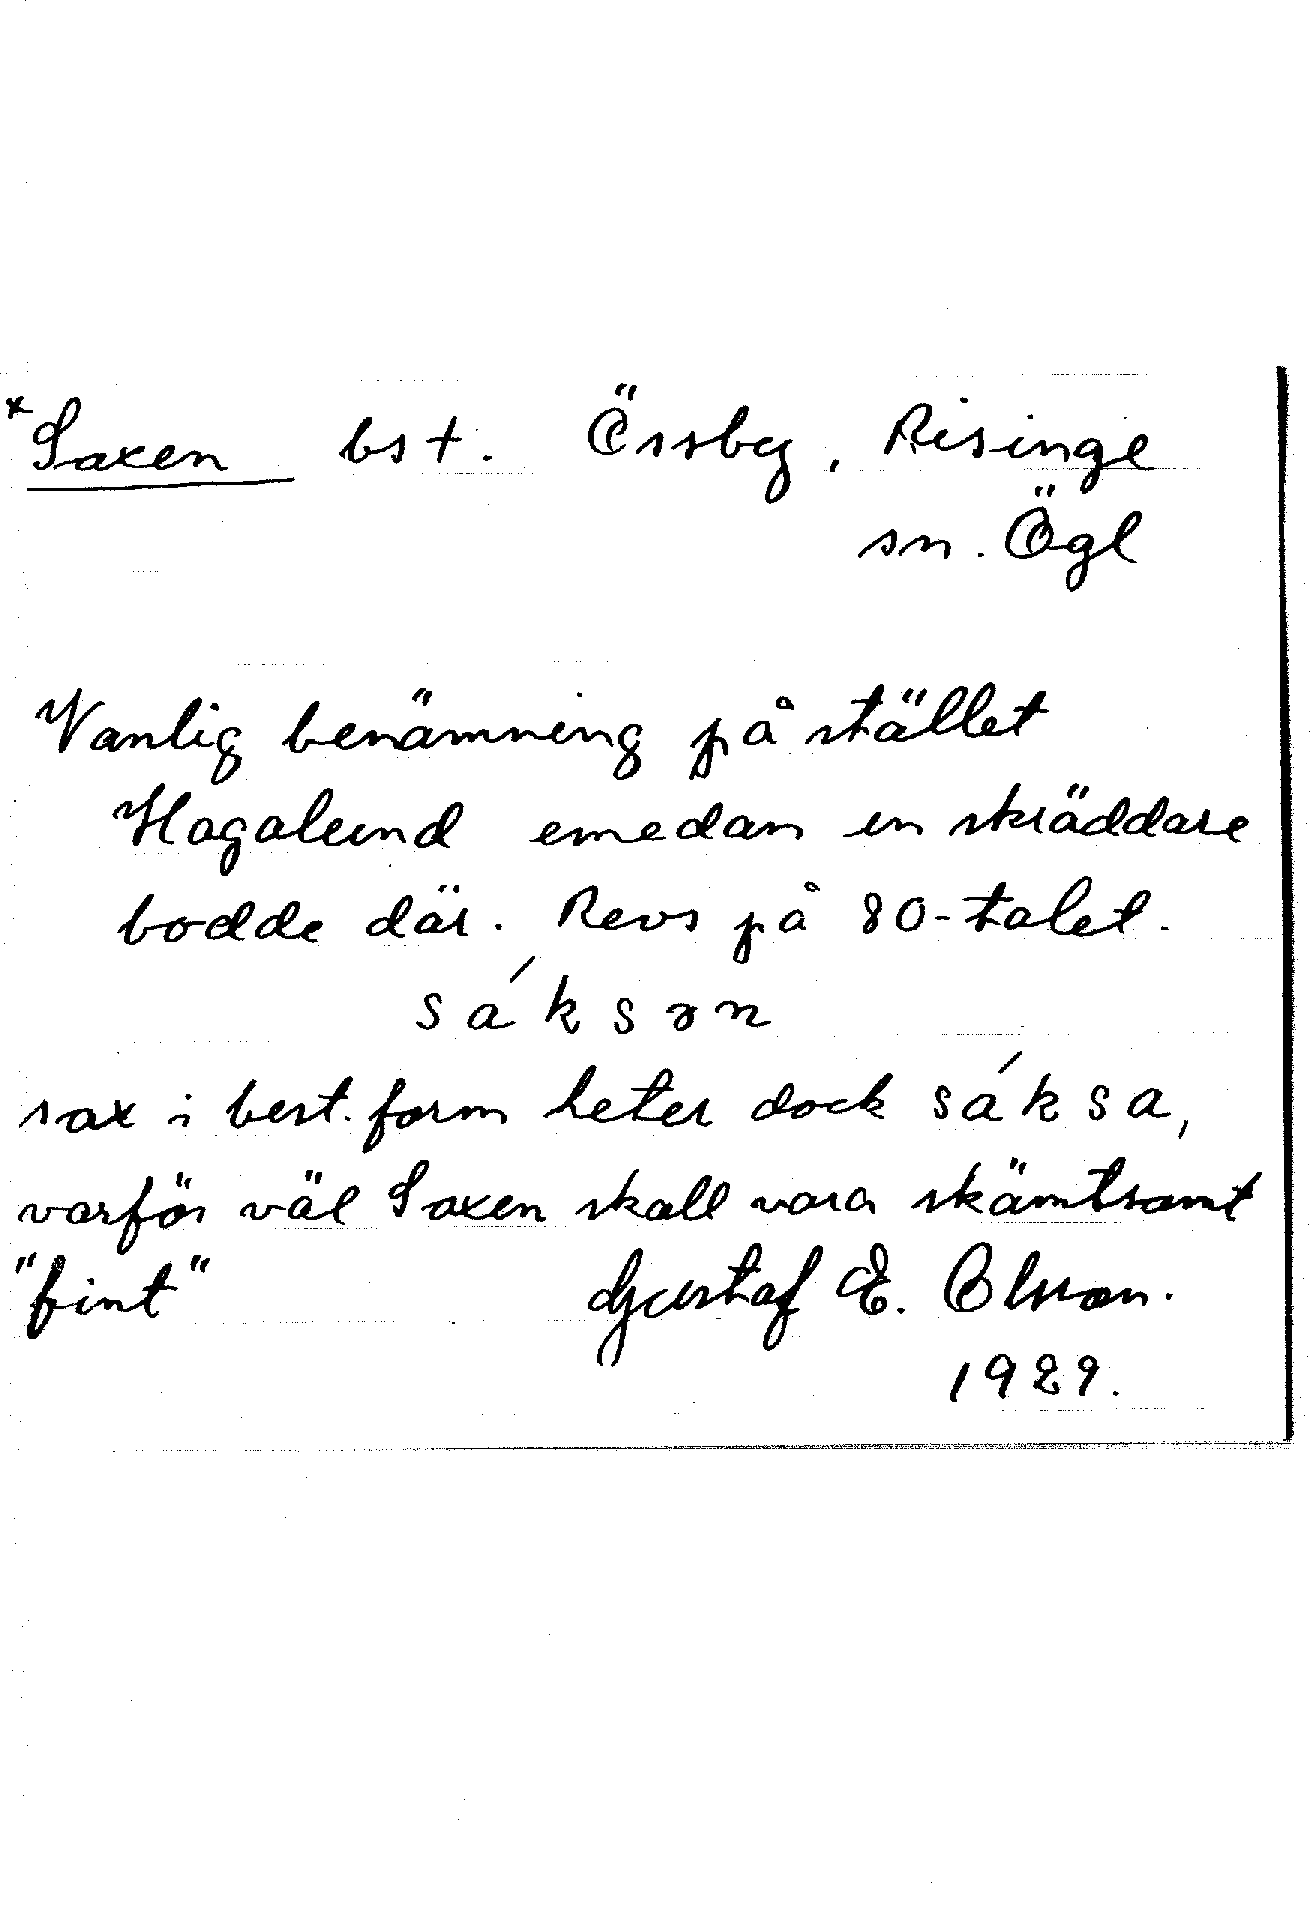 *Saxen bst. Össby, Risinge
sn. Ögl
Vanlig benämning på stället
Hagalund emedan en skräddare
bodde där. Revs på 80-talet.
sáksən
sax i best. form heter dock sáksa,
varför väl Saxen skall vara skämtsamt
"fint" Gustaf E. Olsson.
1929.